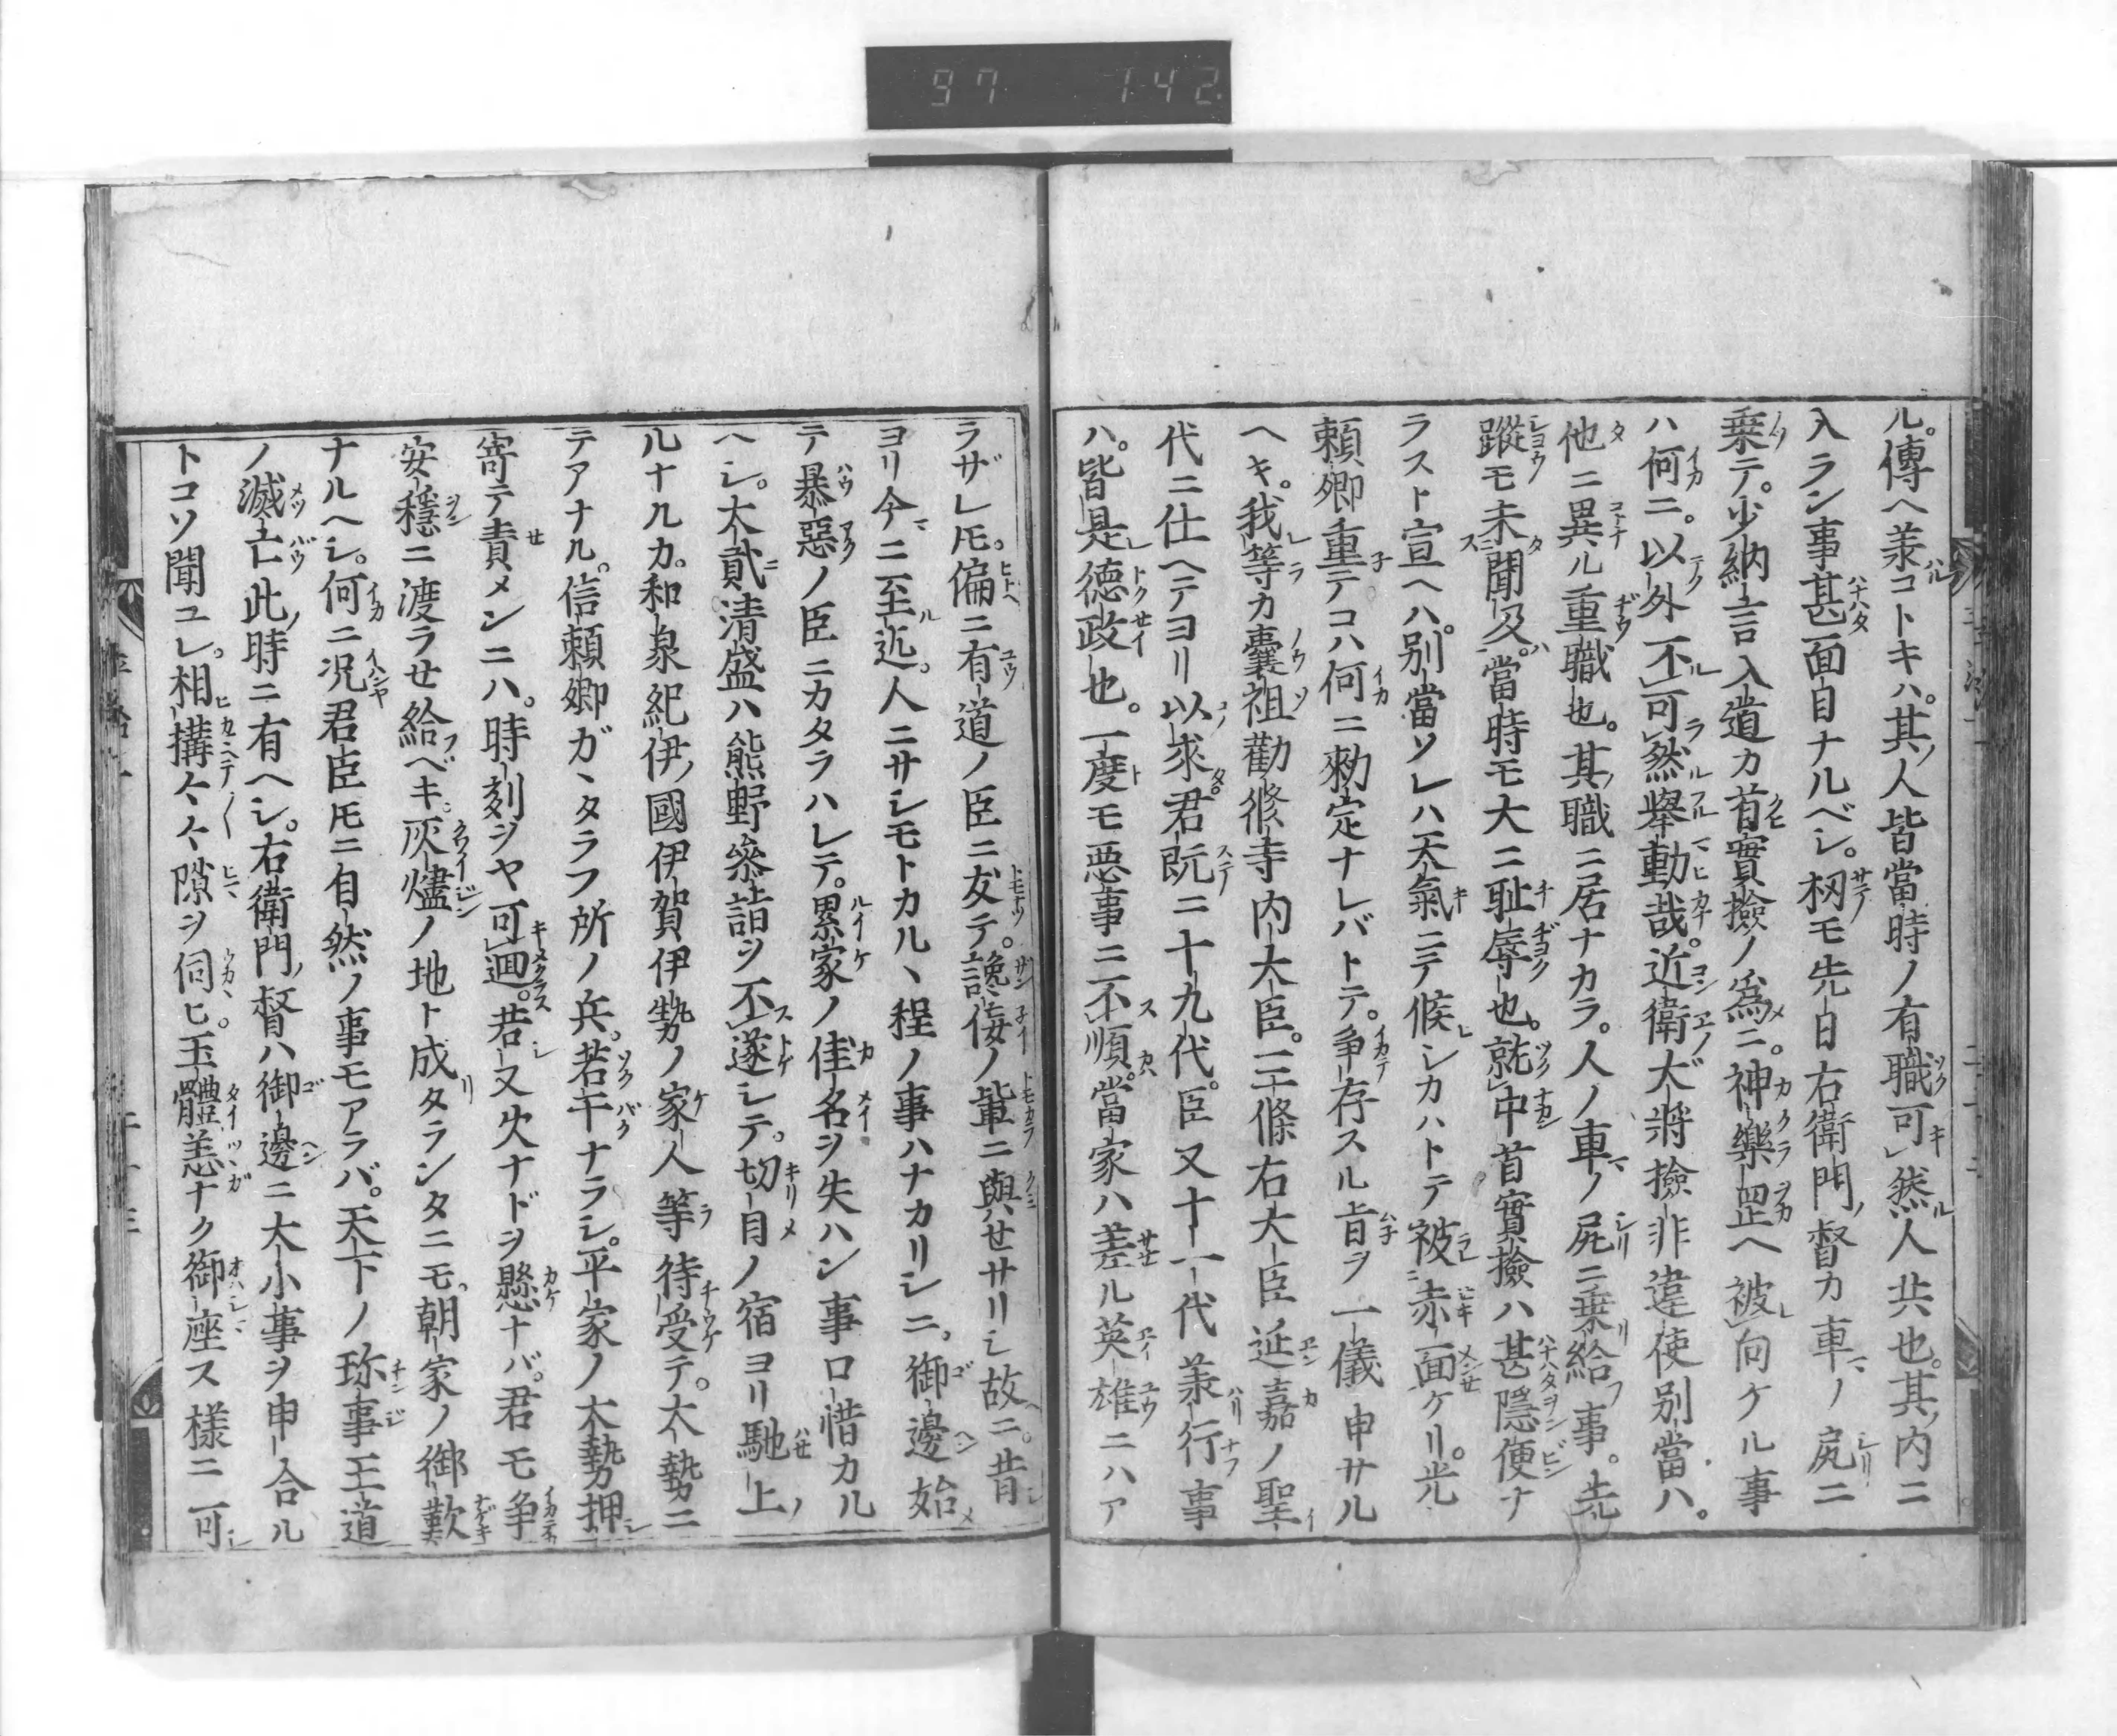 97 142
ル。傳ヘ羕コトキハ。其ノ人皆當時ノ有職可然人共也。其内ニ
入ラン事甚面目ナルベシ。扨モ先日右衛門ノ督カ車ノ尻ニ
乗テ。少納言入道カ首實撿ノ為ニ。神樂罡ヘ被向ケル事
ハ何ニ。以外不可然擧動哉。近衛大將撿非違使別當ハ。
他ニ異ル重職也。其ノ職ニ居ナカラ。人ノ車ノ尻ニ乗給事。先
蹤モ未聞及。當時モ大ニ耻辱也。就中首實撿ハ甚隠便ナ
ラスト宣ヘハ。別當ソレハ天氣ニテ候シカハトテ被赤面ケリ。光
頼卿重テコハ何ニ勅定ナレバトテ。争存スル旨ヲ一儀申サル
ヘキ。我等カ嚢祖勸修寺内大臣。三條右大臣延嘉ノ聖
代ニ仕ヘテヨリ以来君既ニ十九代。臣又十一代羕行事
ハ。皆是徳政也。一度モ悪事ニ不順。當家ハ差ル英雄ニハア
ラザレ𪜈。偏ニ有道ノ臣ニ友テ。讒侫ノ輩ニ與せサリシ故ニ。昔
ヨリ今ニ至迄。人ニサシモトカルヽ程ノ事ハナカリシニ。御邊始
テ暴惡ノ臣ニカタラハレテ。累家ノ佳名ヲ失ハン事口惜カル
ヘシ。太貳清盛ハ熊野參詣ヲ不遂シテ。切目ノ宿ヨリ馳上
ルナルカ。和泉紀伊ノ國伊賀伊勢ノ家人等待受テ。大勢ニ
テアナル。信頼卿ガヽタラフ所ノ兵。若干ナラシ。平家ノ大勢押
寄テ責メンニハ。時刻ジヤ可廻。若又火ナドヲ懸ナバ。君モ争
安穏ニ渡ラせ給ベキ。灰燼ノ地ト成タランタニモ。朝家ノ御歎
ナルヘシ。何ニ况君臣𪜈ニ自然ノ事モアラバ。天下ノ珎事王道
ノ滅亡此ノ時ニ有ヘシ。右衛門ノ督ハ御邊ニ大小事ヲ申合ル
トコソ聞ユレ。相搆ヘ々々隙ヲ伺ヒ。玉體恙ナク御座ス様ニ可